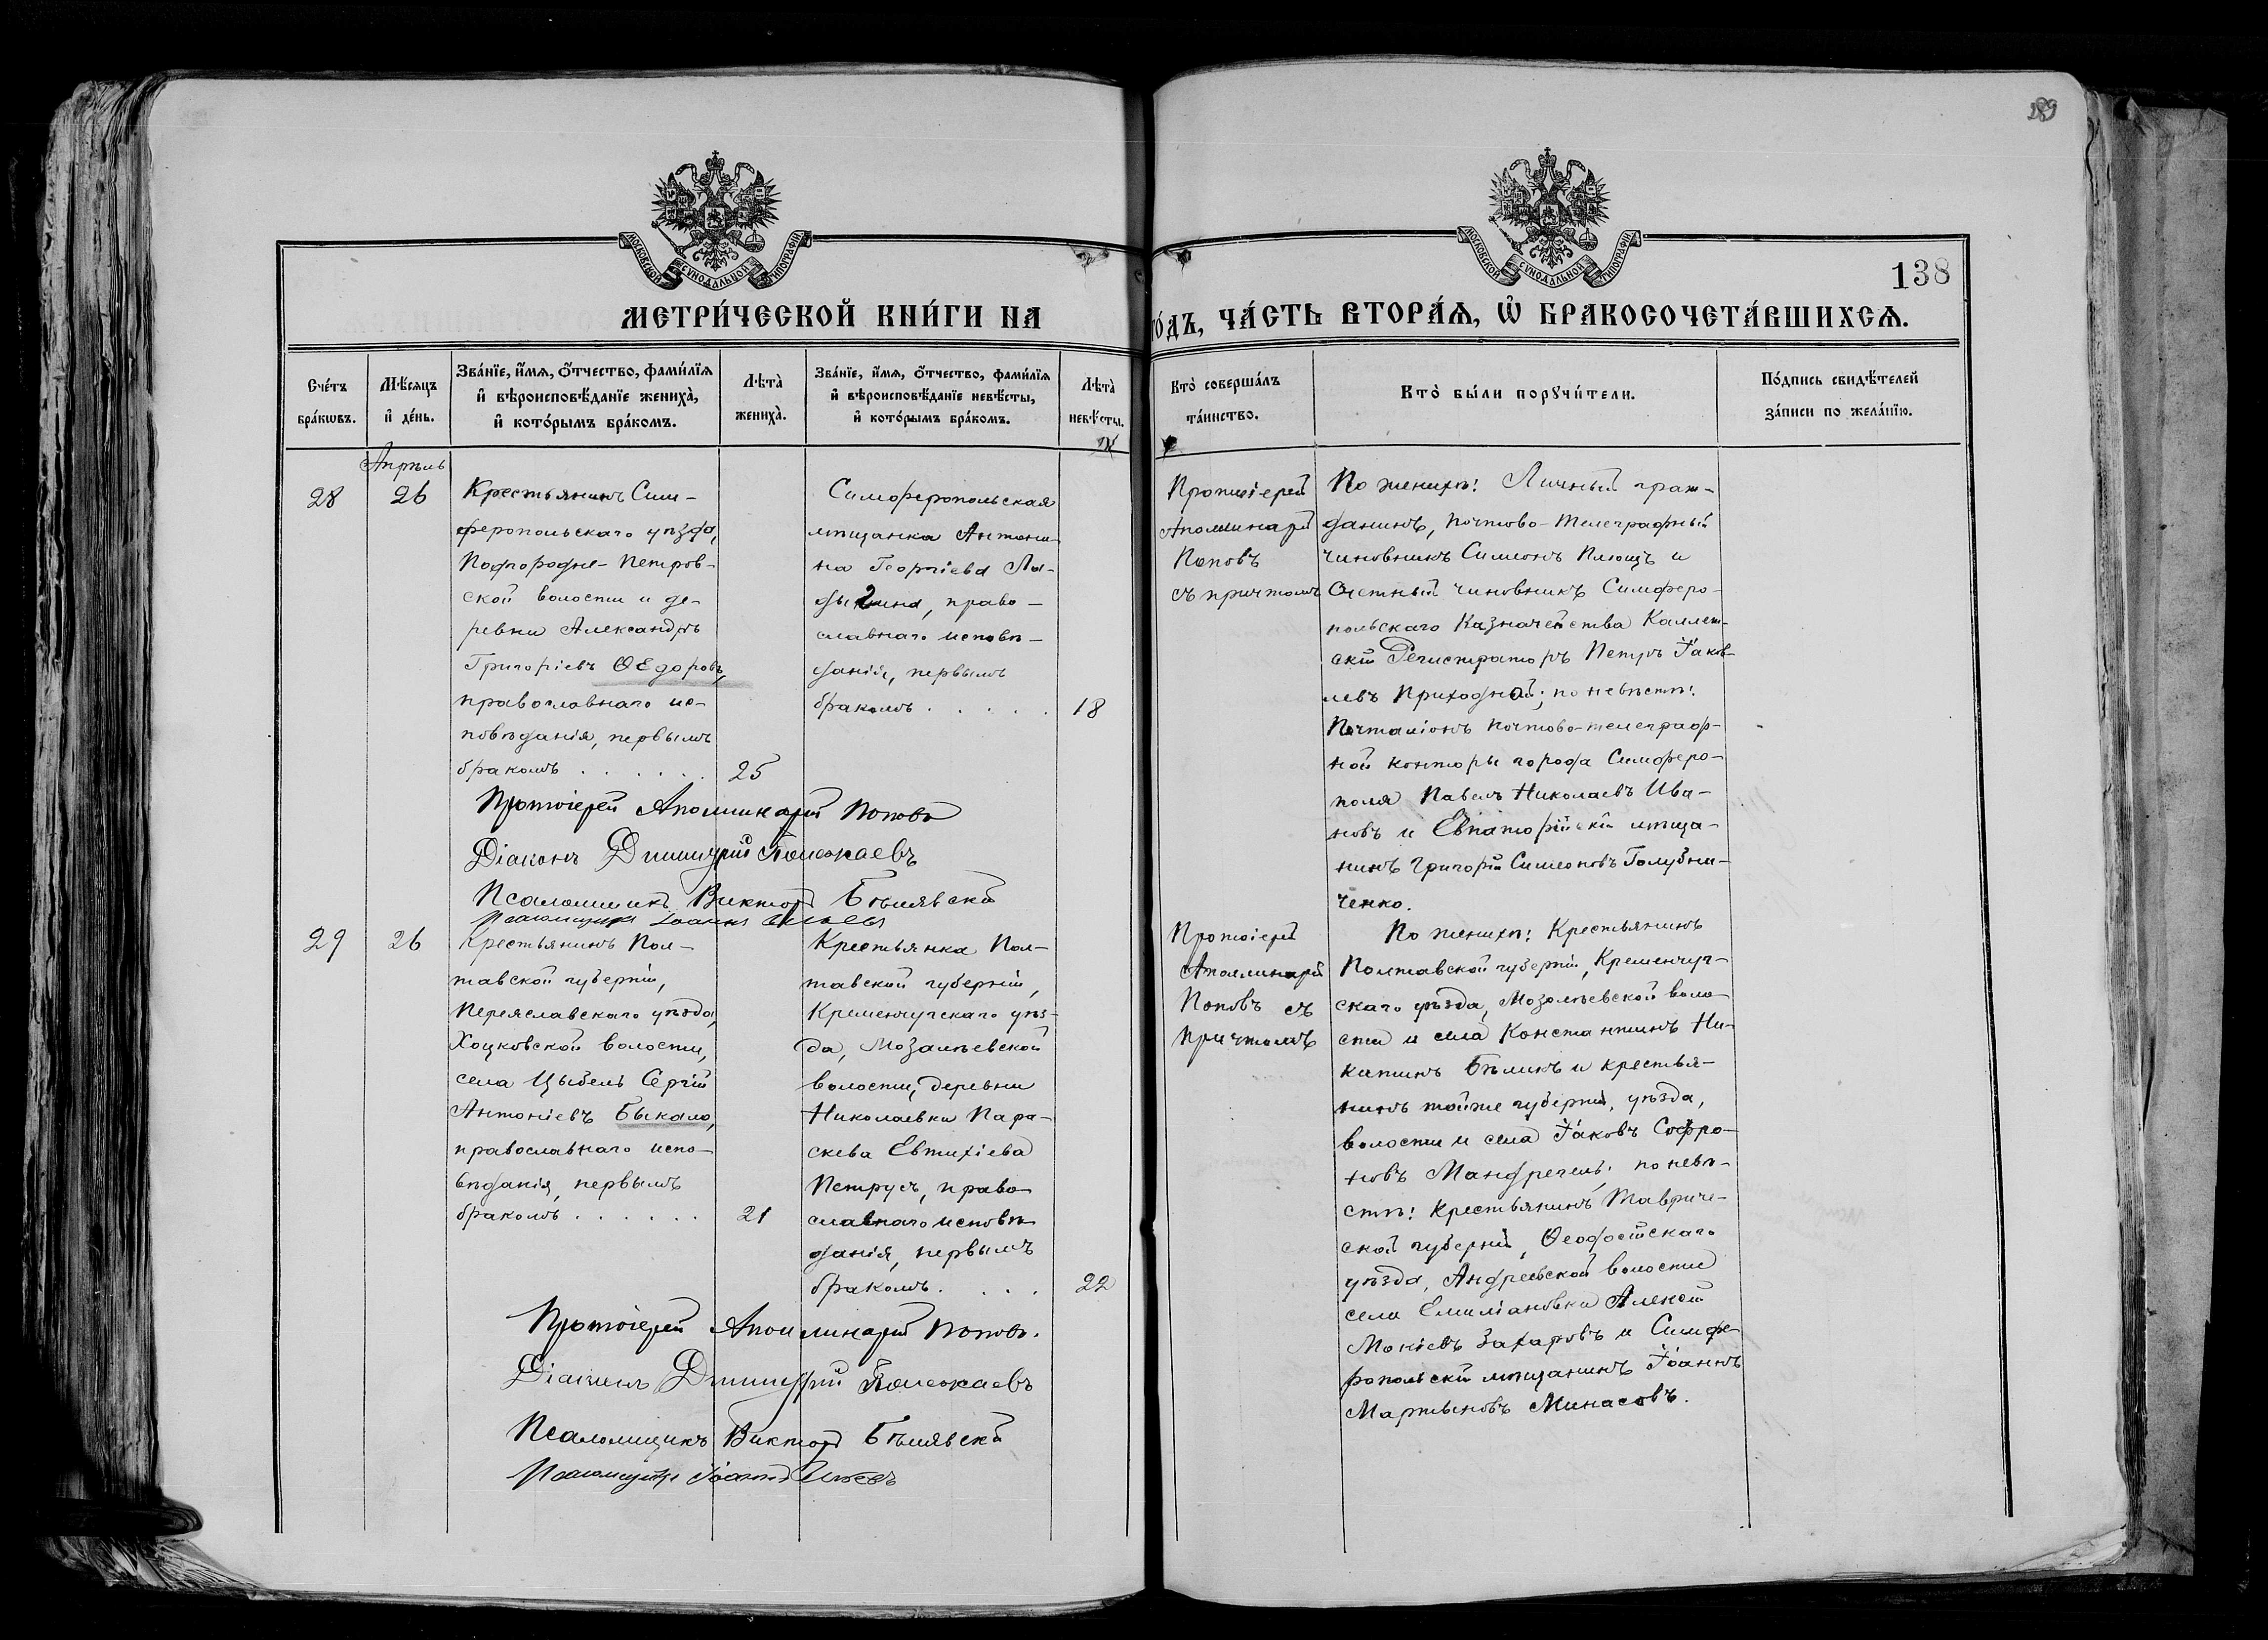 189
МОСКОВСКОЙ СУНОДАЛЬНОЙ ТИПОГРАФІИ
МОСКОВСКОЙ СУНОДАЛЬНОЙ ТИПОГРАФІИ
138
МЕТРИ́ЧЕСКОЙ КНИ́ГИ НА
ГО́ДЪ, ЧА́СТЬ ВТОРА́Ѧ, Ѡ БРАКОСОЧЕТА́ВШИХСѦ.
Сче́тъ
бра́кѡвъ.
Мѣ́сѧцъ
и҆ де́нь.
Зва́нїе, и҆́мѧ, ѻ҆́тчество, фами́лїѧ
и҆ вѣроисповѣ́данїе жениха̀,
и҆ кото́рымъ бра́комъ.
Лѣта̀
жениха̀.
Зва́нїе, и҆́мѧ, ѻ҆́тчество, фами́лїѧ
и҆ вѣроисповѣ́данїе невѣ́сты,
и҆ кото́рымъ бра́комъ.
Лѣта̀
невѣ́сты.
Кто̀ соверша́лъ
та́инство.
Кто̀ бы́ли порꙋчи́тели.
По́дпись свидѣ́телей
за́писи по жела́нїю.
Апрѣль
28
26
Крестьянинъ Сим-
феропольскаго уѣзда,
Подгородне-Петров-
ской волости и де-
ревни Александръ
Григоріевъ Ѳедоровъ,
православнаго ис-
повѣданія, первымъ
бракомъ . . . . . .
25
Симферопольская
мѣщанка Антони-
на Георгіева
право-
славнаго исповѣ-
данія, первымъ
бракомъ . . . . .
18
Протоіерей
Аполлинарій
Поповъ
съ причтомъ
По женихѣ: Личный граж-
данинъ, почтово-телеграфный
чиновникъ Симеонъ Плющъ и
Счетный чиновникъ Симферо-
польскаго Казначейства Коллеж-
скій Регистраторъ Петръ Іаков-
левъ Приходной; по невѣстѣ:
Почталіонъ почтово-телеграф-
ной конторы города Симферо-
поля Павелъ Николаевъ Ива-
новъ и Евпаторійскій мѣща-
нинъ Григорій Симеоновъ Голубни-
ченко.
Протоіерей Аполлинарій Поповъ
Діаконъ Димитрій Полежаевъ
Псаломщикъ Викторъ Бѣлявскій
Псаломщикъ Іоаннъ
29
26
Крестьянинъ Пол-
тавской губерніи,
Переяславскаго уѣзда,
Хоцковской волости,
села Цыбель Сергій
Антоніевъ Быкало,
православнаго испо-
вѣданія, первымъ
бракомъ . . . . . .
21
Крестьянка Пол-
тавской губерніи,
Кременчугскаго уѣз-
да, Мозалѣевской
волости, деревни
Николаевки Пара-
скева Евтихіева
Петрусъ, право-
славнаго исповѣ-
данія, первымъ
бракомъ. . . .
22
Протоіерей
Аполлинарій
Поповъ съ
причтомъ
По женихѣ: Крестьянинъ
Полтавской губерніи, Кременчуг-
скаго уѣзда, Мозолѣевской воло-
сти и села Константинъ Ни-
китинъ Бѣликъ и крестья-
нинъ тойже губерніи, уѣзда,
волости и села Іаковъ Софро-
новъ по невѣ-
стѣ: крестьянинъ Тавриче-
ской губерніи, Ѳеодосійскаго
уѣзда, Андреевской волости
села Емиліановки Алексій
Мокіевъ Захаровъ и Симфе-
ропольскій мѣщанинъ Іоаннъ
Мартыновъ Минасовъ.
Протоіерей Аполлинарій Поповъ.
Діаконъ Димитрій Полежаевъ
Псаломщикъ Викторъ Бѣлявскій
Псаломщикъ Іоаннъ